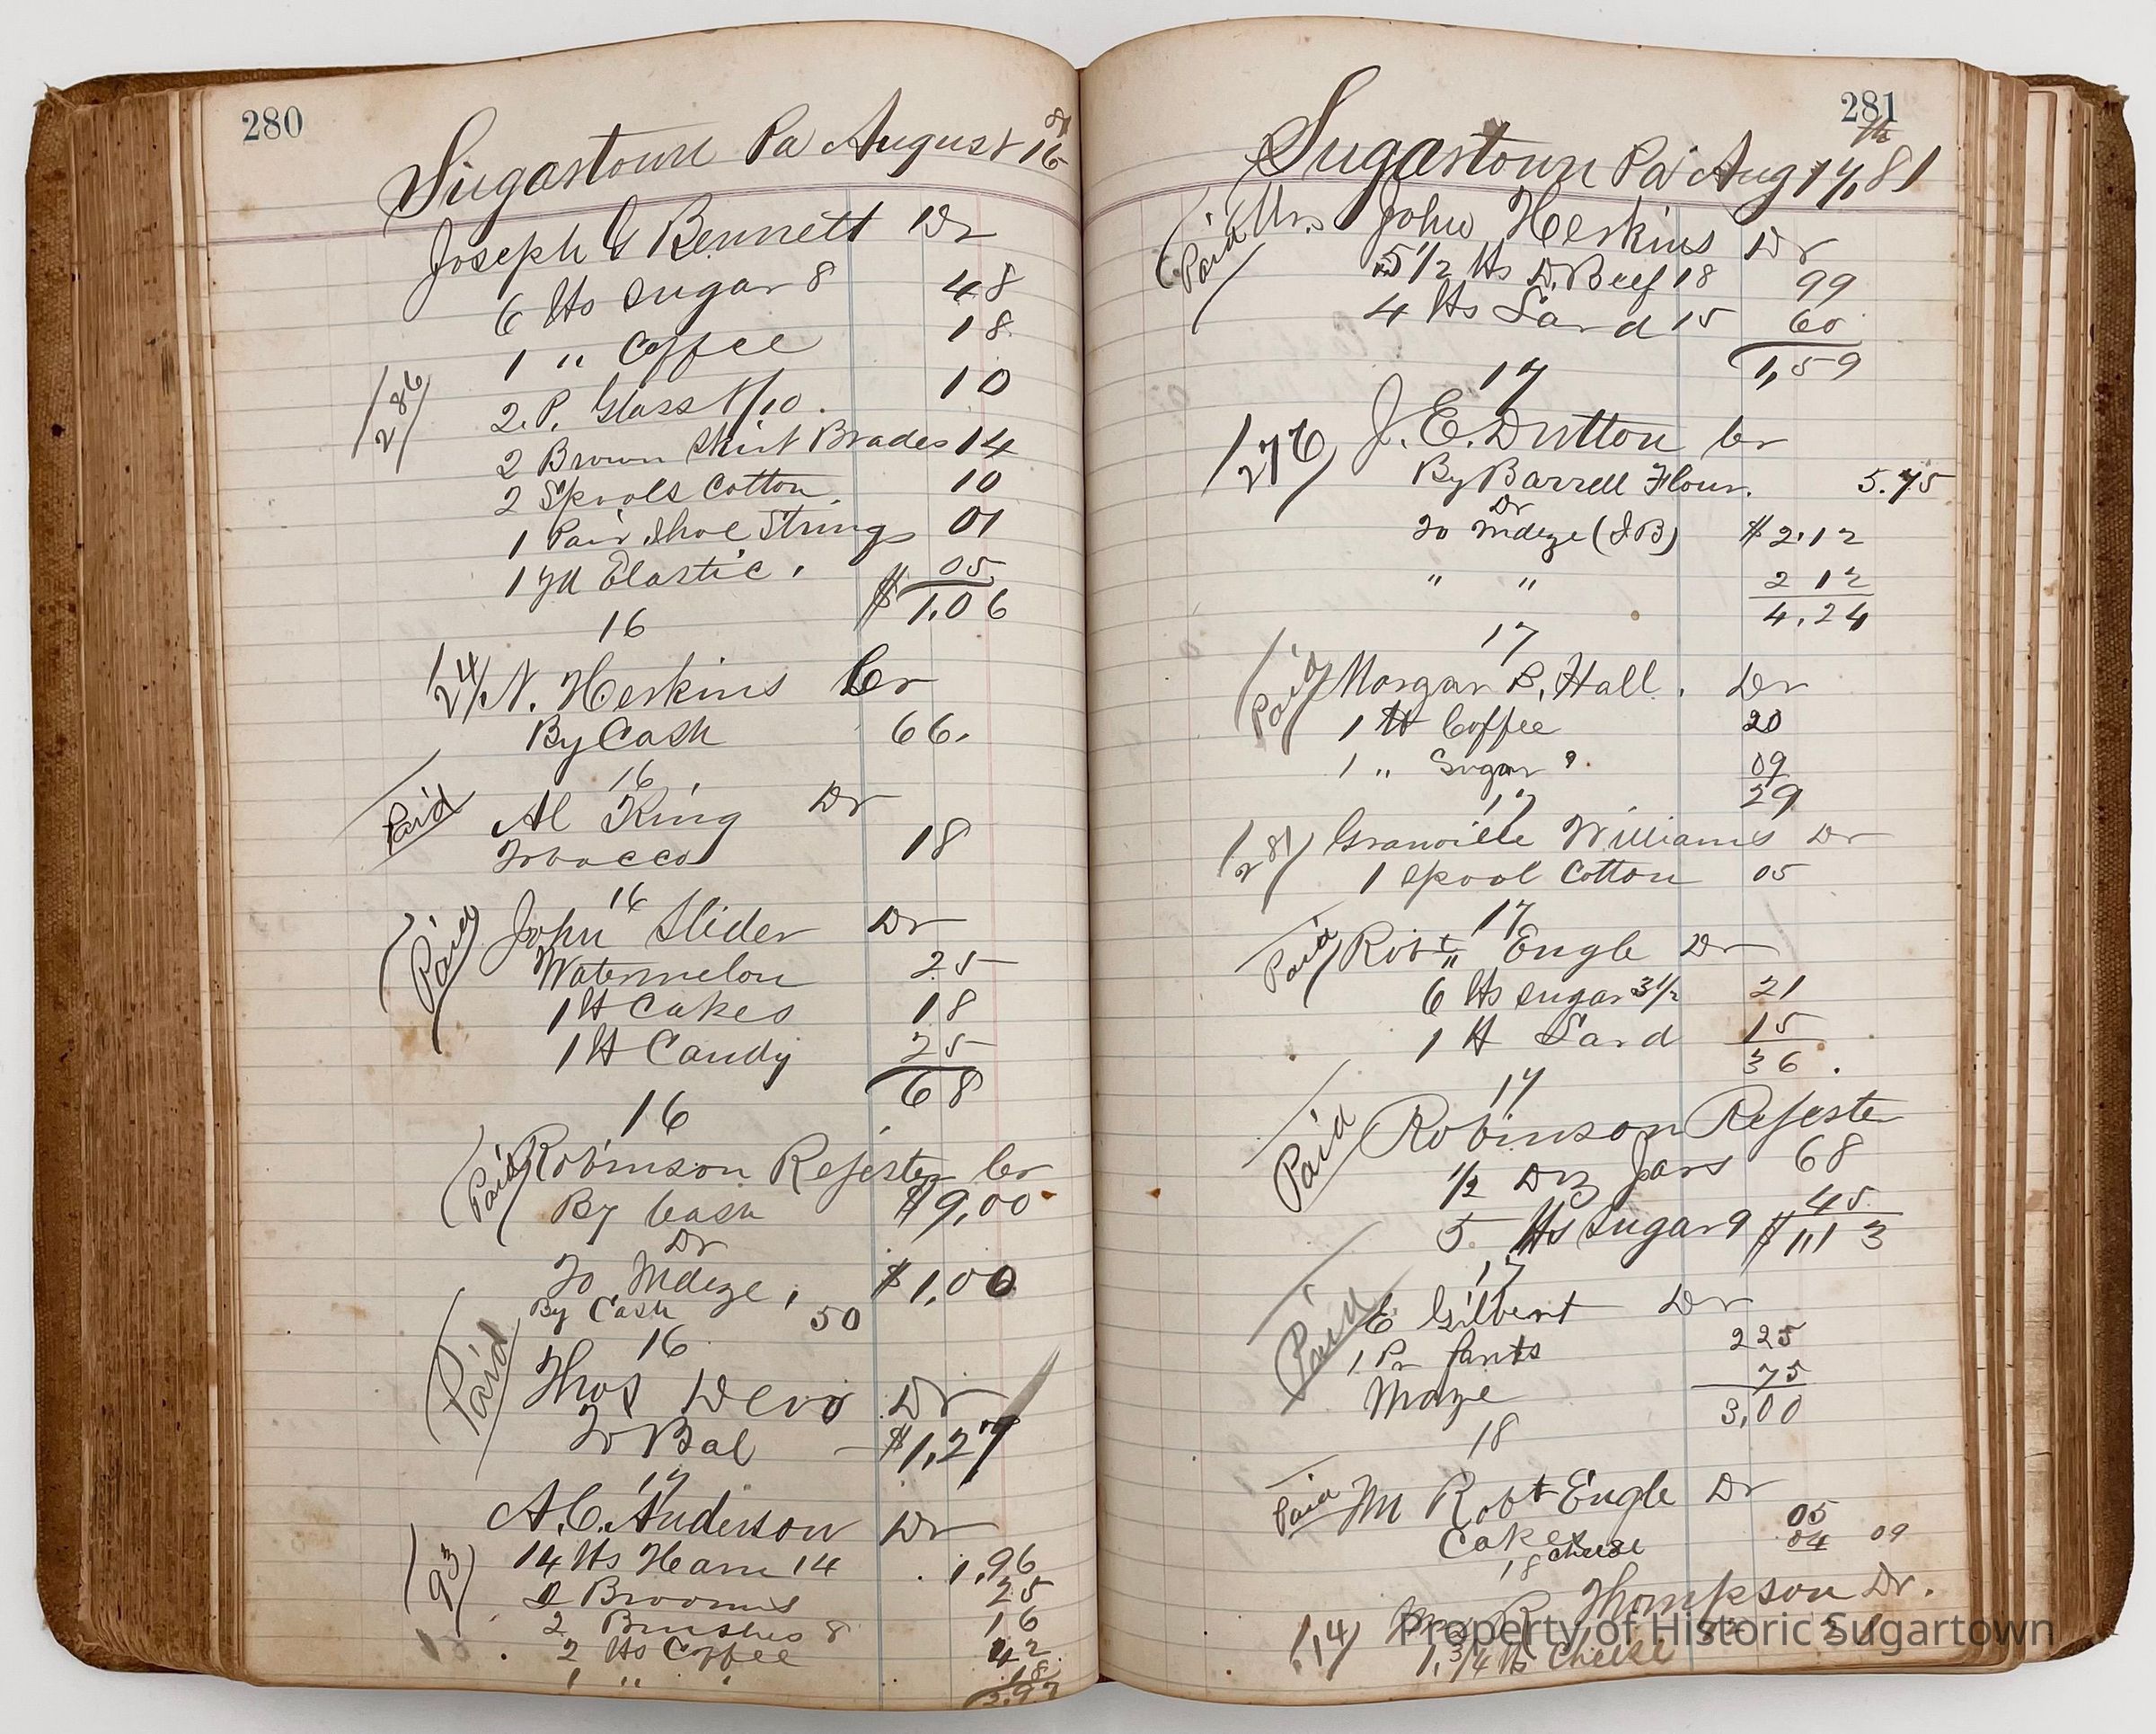 280
Sugartown Pa August 16
81
Joseph G Bennett Dr
6 lbs Sugar 8 48
1 " Coffee 18
286
2. P. Glass 8/10. 10
2 Brown Skirt Brades 14
2 Spools Cotton. 10
1 Pair Shoe Strings 01
1 yd Elastic. 05
16 $1.06
24 N. Herkins Cr
By Cash 66.
16
Paid Al King Dr
Tobacco 18
16
Paid John Slider Dr
Watermelon 25
1 lb Cakes 18
1 lb Candy 25
68
16
Paid Robinson Rejester Cr
By Cash $9,00
Dr
To Mdze, $1,00
By Cash 50
16
Paid Thos Devo Dr
To Bal $1,27
17
A. C. Anderson Dr
93 14 lbs Ham 14 1,96
2 Brooms 25
2 Brushes 8 16
2 lbs Coffee 42
1 " " 18
2.97
281
Sugartown Pa Aug 17th, 81
Paid Mrs John Herkins Dr
5 1/2 lbs D. Beef 18 99
4 lbs Lard 15 60
17 1,59
276 J. E. Dutton Cr
By Barrell Flour. 5.75
Dr
To Mdze (J B) $2.12
" " 2 12
4.24
17
Paid Morgan B. Hall. Dr
1 lb Coffee 20
1 " Sugar 9. 09
17 29
281 Granville Williams Dr
1 Spool Cotton 05
17
Paid Robt Engle Dr
6 lbs Sugar 3 1/2 21
1 lb Lard 15
36.
17
Paid Robinson Rejester
1/2 Dz Jars 68
5 lbs Sugar 9 45
$1,13
17
Paid E Gilbert Dr
1 Pr Pants 225
Mdze 75
3,00
18
Paid M Robt Engle Dr
Cakes 05
Cheese 04 09
18
14 R Thompson Dr.
1 3/4 lb Cheese
Property of Historic Sugartown